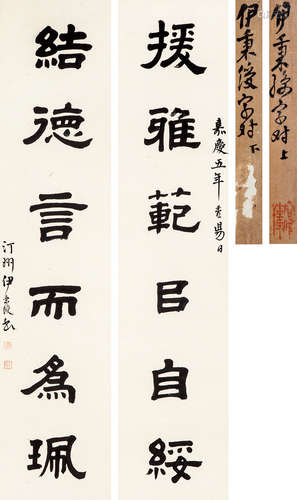 伊秉綬字对 上
伊秉綬字对 下
嘉慶五年陽日
援雅範㠯自綏
結德言而為珮
汀州伊秉綬書